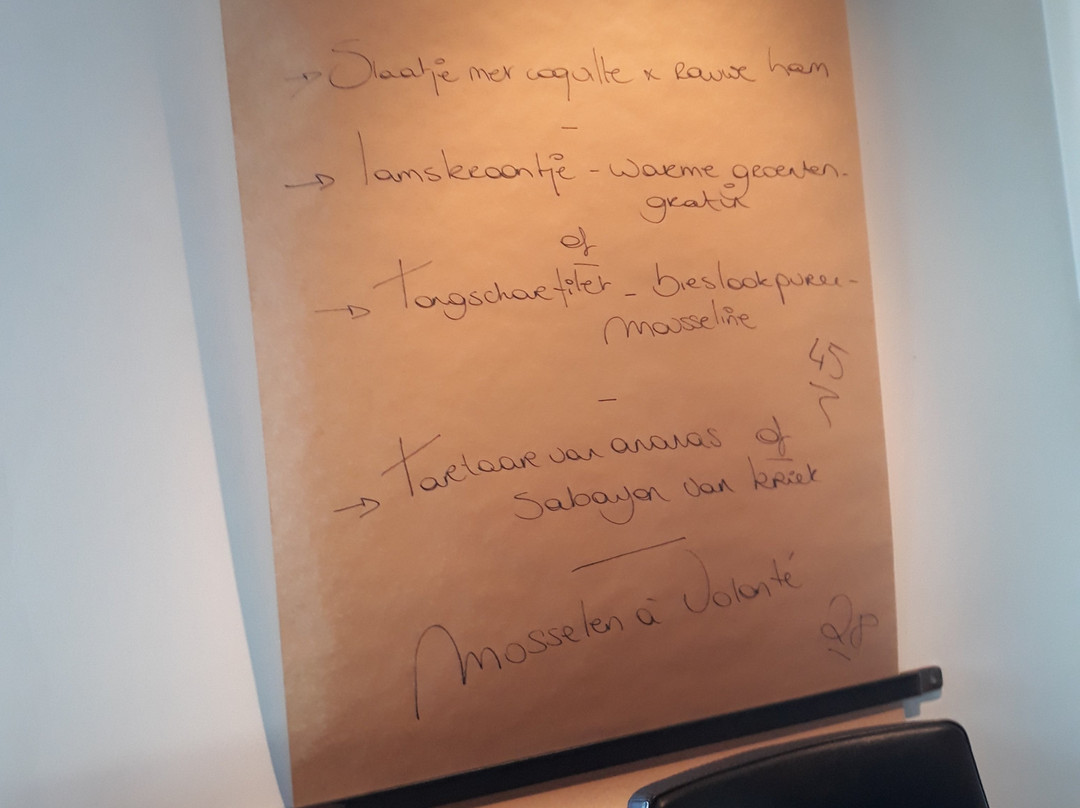 → Slaatje met coquille x Rauwe ham
–
→ lamskroontje - warme groenten-
gratin
of
→ Tongscharfilet - bieslookpuree-
mousseline
45
–
→ Tartaare van ananas of
Sabayon van kriek
Mosselen à Volonté
28